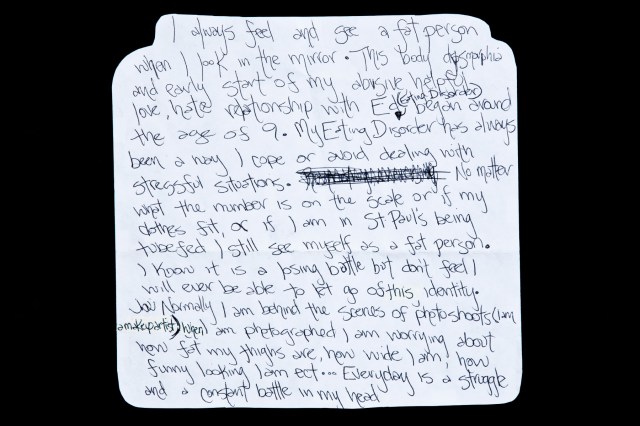 I always feel and see a fat person
when I look in the mirror. This body dysmorphia
and early start of my abusive helpful
love, hate relationship with Ed (Eating Disorder) began around
the age of 9. My Eating Disorder has always
been a way I cope or avoid dealing with
stressful situations. No matter
what the number is on the scale or if my
clothes fit, or if I am in St Paul's being
tubefed I still see myself as a fat person.
I know it is a losing battle but don't feel I
will ever be able to let go of this identity.
Normally I am behind the scenes of photoshoots (I am
a makeup artist) When I am photographed I am worrying about
how fat my thighs are, how wide I am, how
funny looking I am ect... Everyday is a struggle
and a constant battle in my head